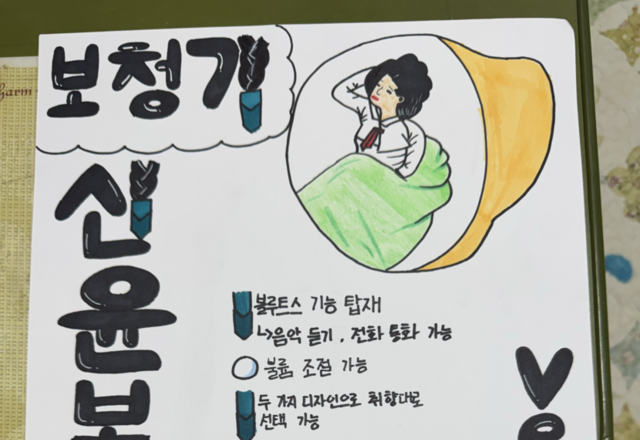 보청기
신윤보
블루트스 기능 탑재
↳음악 듣기, 전화 통화 가능
볼륨 조절 가능
두 가지 디자인으로 취향대로
선택 가능